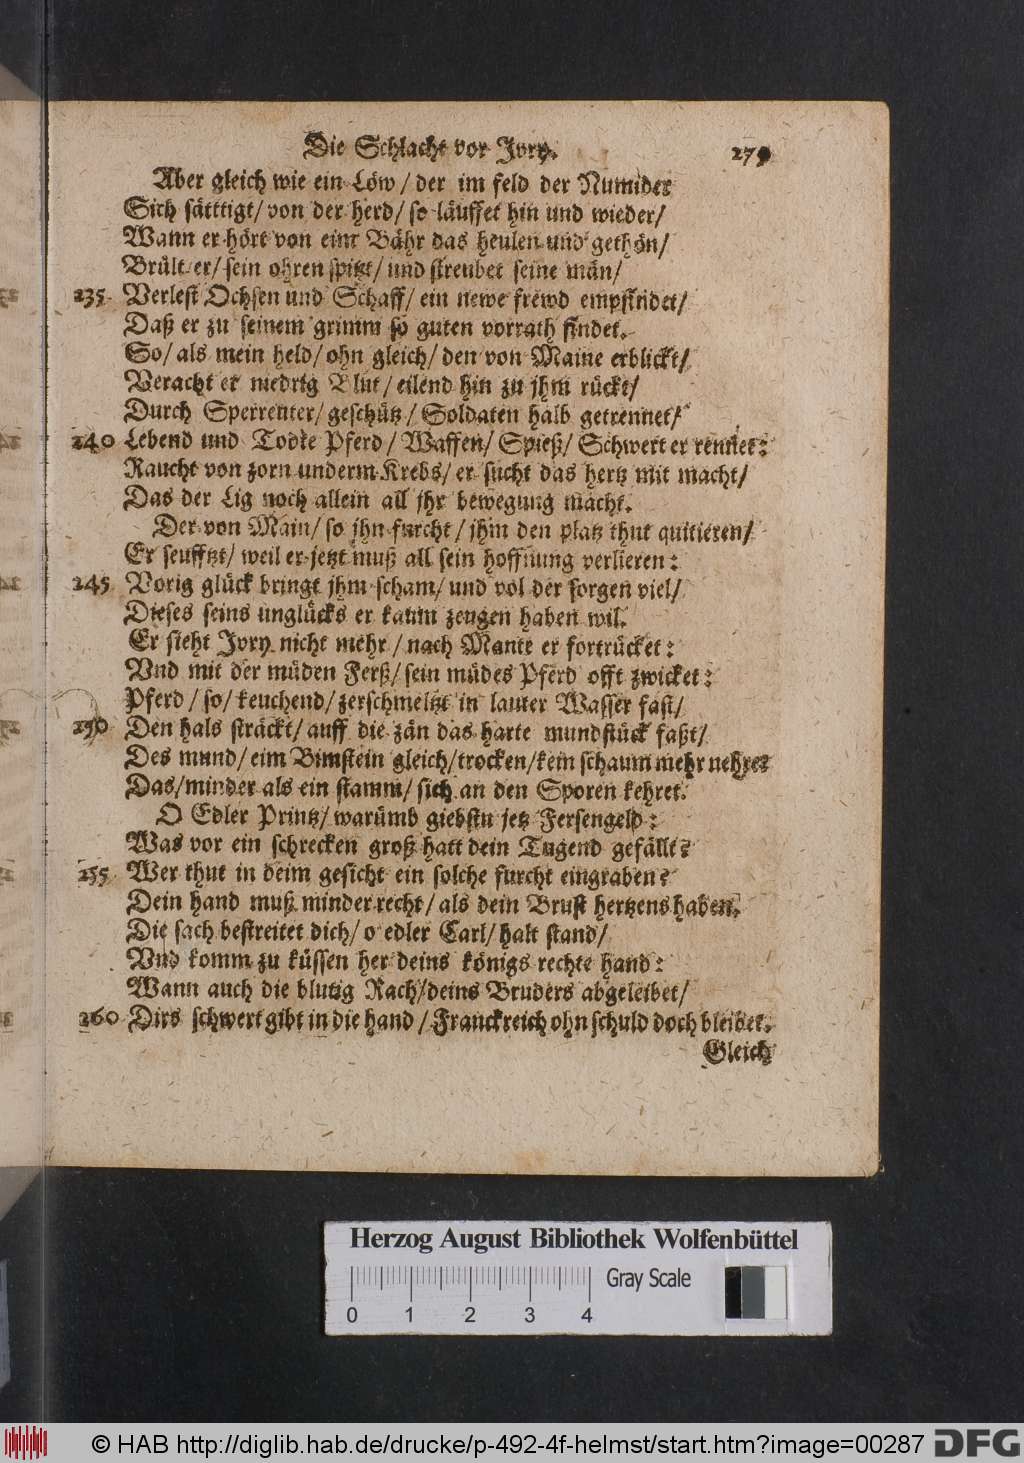 Die Schlacht vor Jvry. 279
Aber gleich wie ein Löw / der im feld der Numider
Sich sätttigt / von der herd / so läuffet hin und wieder /
Wann er hört von eim Bähr das heulen und gethön /
Brült er / sein ohren spitzt / und streubet seine män /
235 Verlest Ochsen und Schaff / ein newe frewd empfindet /
Daß er zu seinem grimm so guten vorrath findet.
So / als mein held / ohn gleich / den von Maine erblickt /
Veracht er niedrig Blut / eilend hin zu jhm rückt /
Durch Sperrenter / geschütz / Soldaten halb getrennet /
240 Lebend und Todte Pferd / Waffen / Spieß / Schwert er rennet:
Raucht von zorn underm Krebs / er sucht das hertz mit macht /
Das der Lig noch allein all jhr bewegung macht.
Der von Main / so jhn furcht / jhm den platz thut quitieren /
Er seufftzt / weil er jetzt muß all sein hoffnung verlieren:
245 Vorig glück bringt jhm scham / und vol der sorgen viel /
Dieses seins unglücks er kaum zeugen haben wil.
Er sieht Jvry nicht mehr / nach Mante er fortrücket:
Vnd mit der müden Ferß / sein müdes Pferd offt zwicket:
Pferd / so / keuchend / zerschmeltzt in lauter Wasser fast /
250 Den hals sträckt / auff die zän das harte mundstück faßt /
Des mund / eim Bimstein gleich / trocken / kein schaum mehr nehret
Das / minder als ein stamm / sich an den Sporen kehret.
O Edler Printz / warümb giebstu jetz Fersengeld:
Was vor ein schrecken groß hatt dein Tugend gefällt?
255 Wer thut in deim gesicht ein solche furcht eingraben?
Dein hand muß minder recht / als dein Brust hertzens haben.
Die sach bestreitet dich / o edler Carl / halt stand /
Vnd komm zu küssen her deins königs rechte hand:
Wann auch die blutig Rach / deins Bruders abgeleibet /
260 Dirs schwert gibt in die hand / Franckreich ohn schuld doch bleibet.
Gleich
Herzog August Bibliothek Wolfenbüttel
Gray Scale
0 1 2 3 4
© HAB http://diglib.hab.de/drucke/p-492-4f-helmst/start.htm?image=00287 DFG